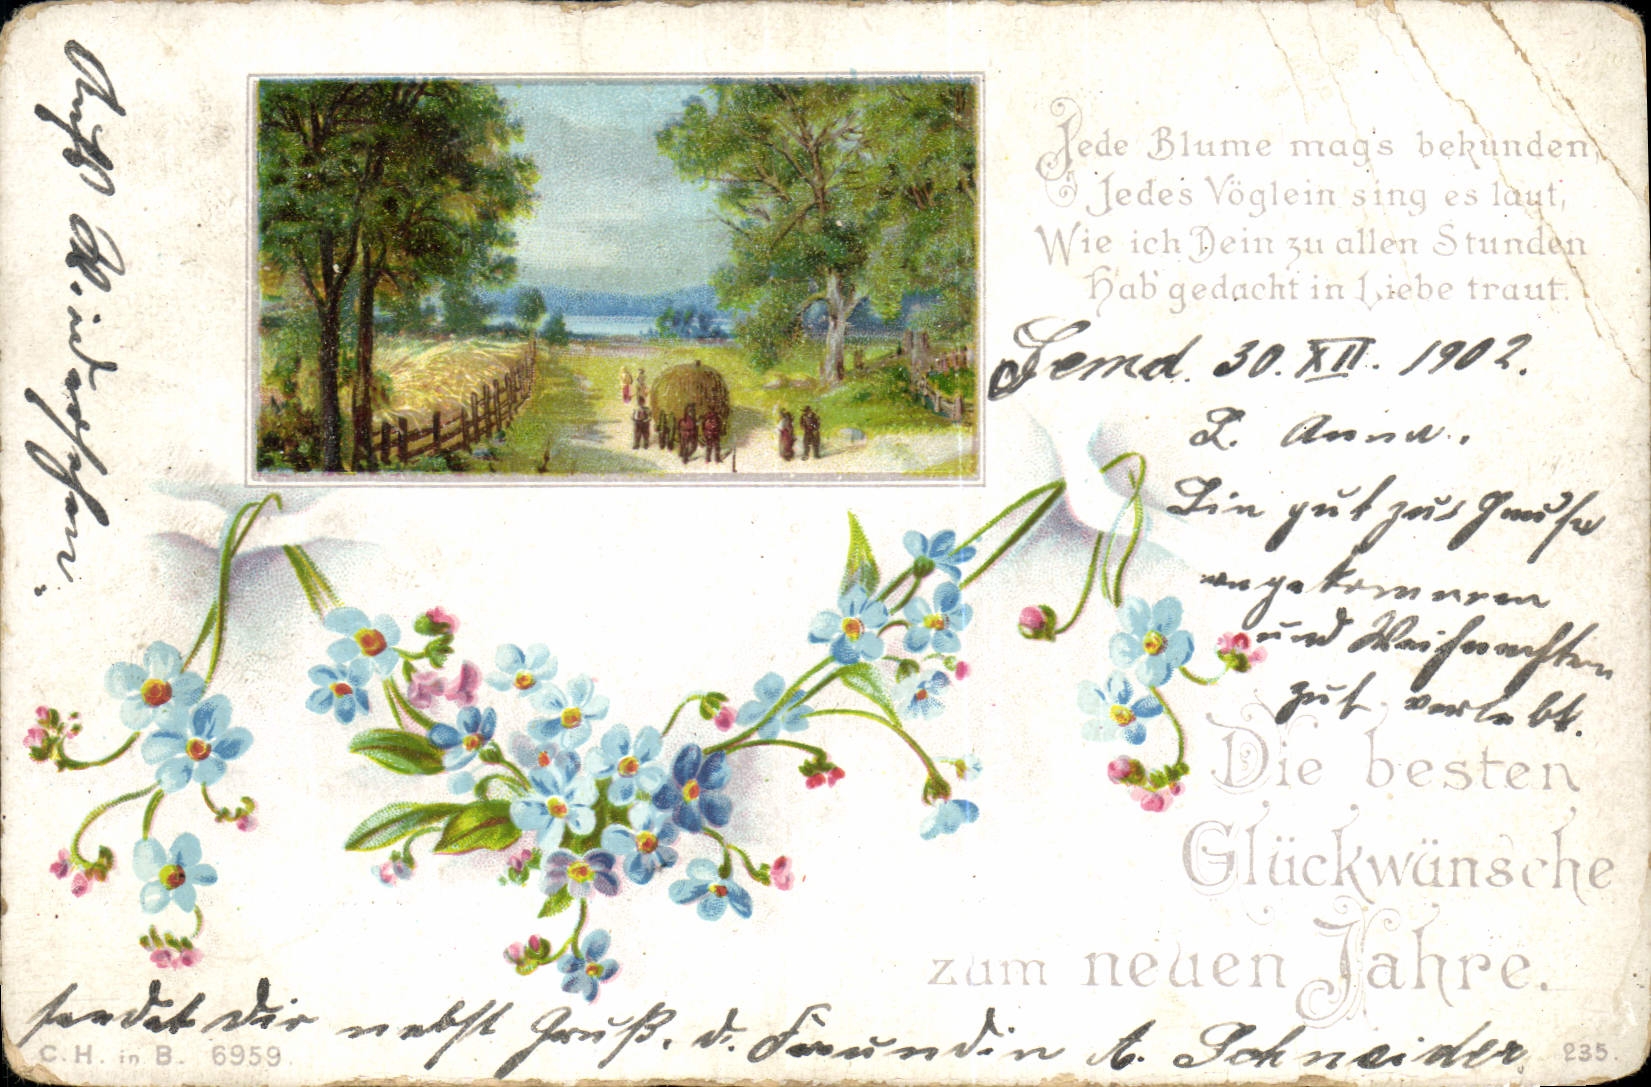 Jede Blume mags bekunden,
Jedes Vöglein sing es laut,
Wie ich Dein zu allen Stunden
Hab' gedacht in Liebe traut.
Gemd. 30. XII. 1902.
L. Anna.
Bin gut zu Hause
angekommen
und Weihnachten
gut verlebt.
Die besten
Glückwünsche
zum neuen Jahre.
sendet dir nebst Gruß, d. Freundin A. Schneider.
C. H. in B. 6959.
235.
Auf Wiedersehen.